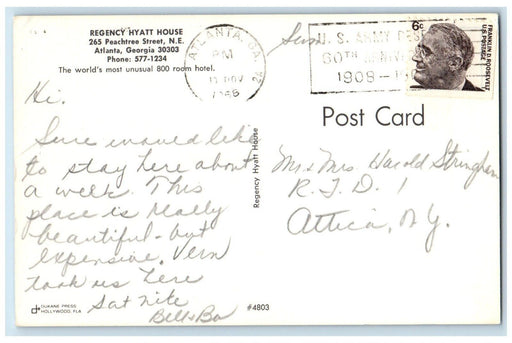 REGENCY HYATT HOUSE
265 Peachtree Street, N.E.
Atlanta, Georgia 30303
Phone: 577-1234
The world's most unusual 800 room hotel.
ATLANTA, GA.
PM
U. S. ARMY
60TH
1908-
6c
FRANKLIN D. ROOSEVELT
U.S. POSTAGE
Post Card
Hi.
Sure would like
to stay here about
a week. This
place is really
beautiful - but
expensive. Vern
took us here
Sat nite
Regency Hyatt House
Mr & Mrs Harold Stringham
R.F.D. 1
Attica, N.Y.
DUKANE PRESS
HOLLYWOOD, FLA
#4803